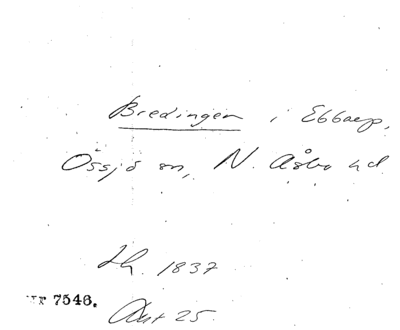 Bredingen i Ebbarp,
Össjö sn, N. Åsbo hd
1837
7546.
Akt 25.